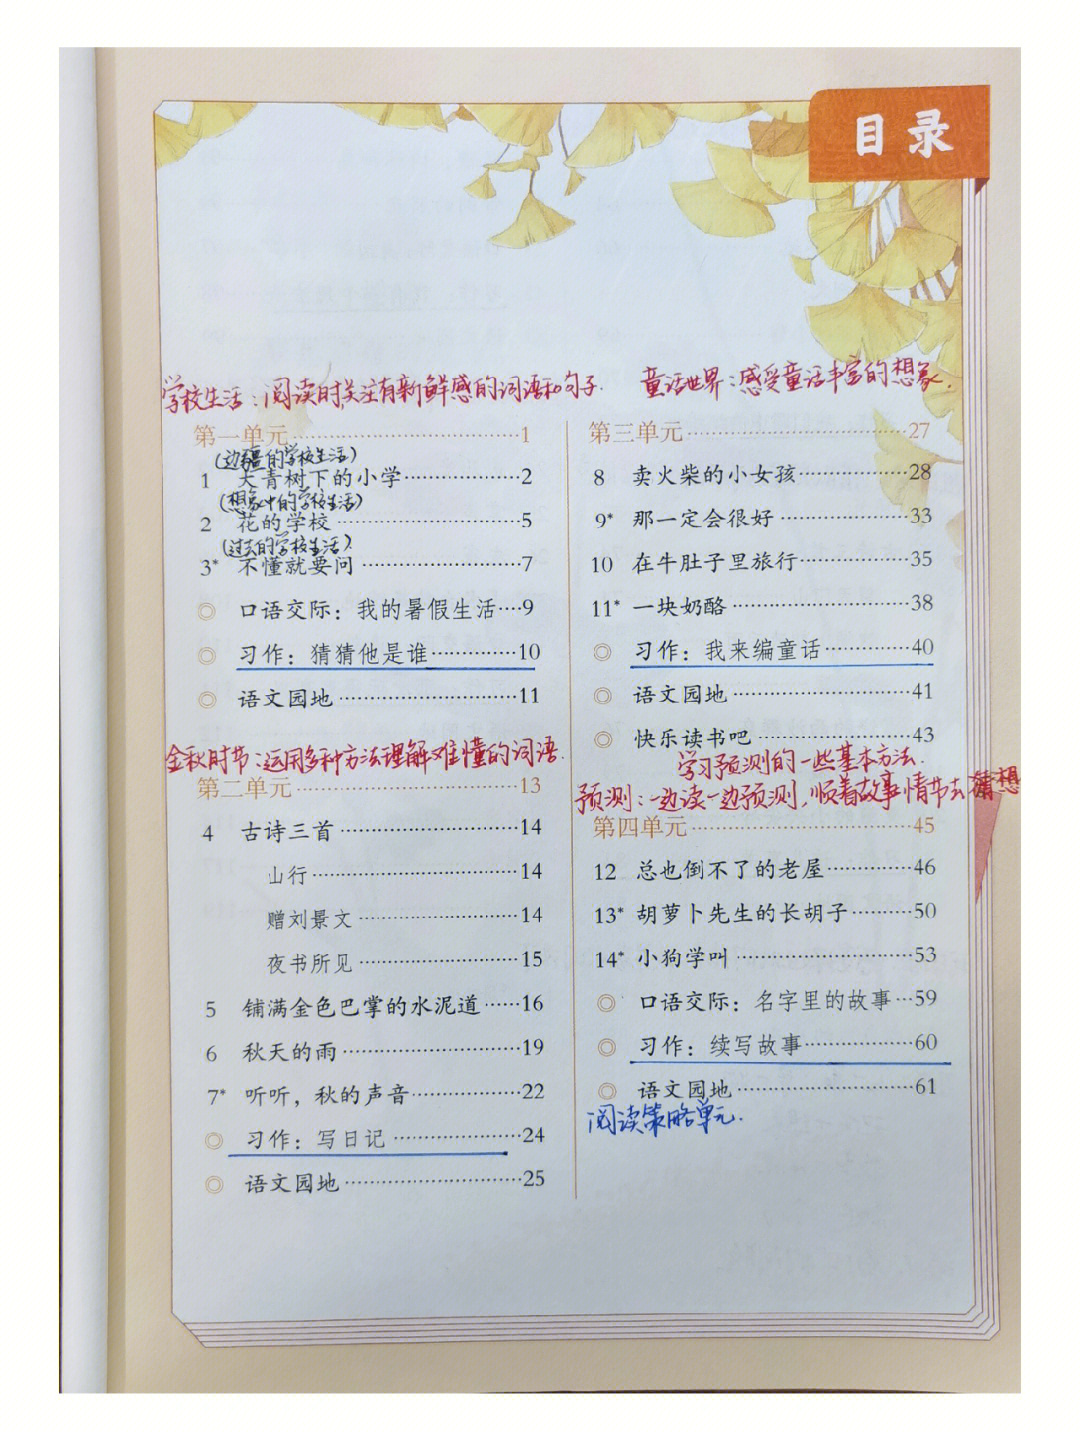 目录
学校生活：阅读时，关注有新鲜感的词语和句子.
第一单元……1
(边疆的学校生活)
1 大青树下的小学……2
(想象中的学校生活)
2 花的学校……5
(过去的学校生活)
3* 不懂就要问……7
◎ 口语交际：我的暑假生活……9
◎ 习作：猜猜他是谁……10
◎ 语文园地……11
金秋时节：运用多种方法理解难懂的词语.
第二单元……13
4 古诗三首……14
山行……14
赠刘景文……14
夜书所见……15
5 铺满金色巴掌的水泥道……16
6 秋天的雨……19
7* 听听，秋的声音……22
◎ 习作：写日记……24
◎ 语文园地……25
童话世界：感受童话丰富的想象.
第三单元……27
8 卖火柴的小女孩……28
9* 那一定会很好……33
10 在牛肚子里旅行……35
11* 一块奶酪……38
◎ 习作：我来编童话……40
◎ 语文园地……41
◎ 快乐读书吧……43
学习预测的一些基本方法.
预测：一边读一边预测，顺着故事情节去猜想
第四单元……45
12 总也倒不了的老屋……46
13* 胡萝卜先生的长胡子……50
14* 小狗学叫……53
◎ 口语交际：名字里的故事……59
◎ 习作：续写故事……60
◎ 语文园地……61
阅读策略单元.